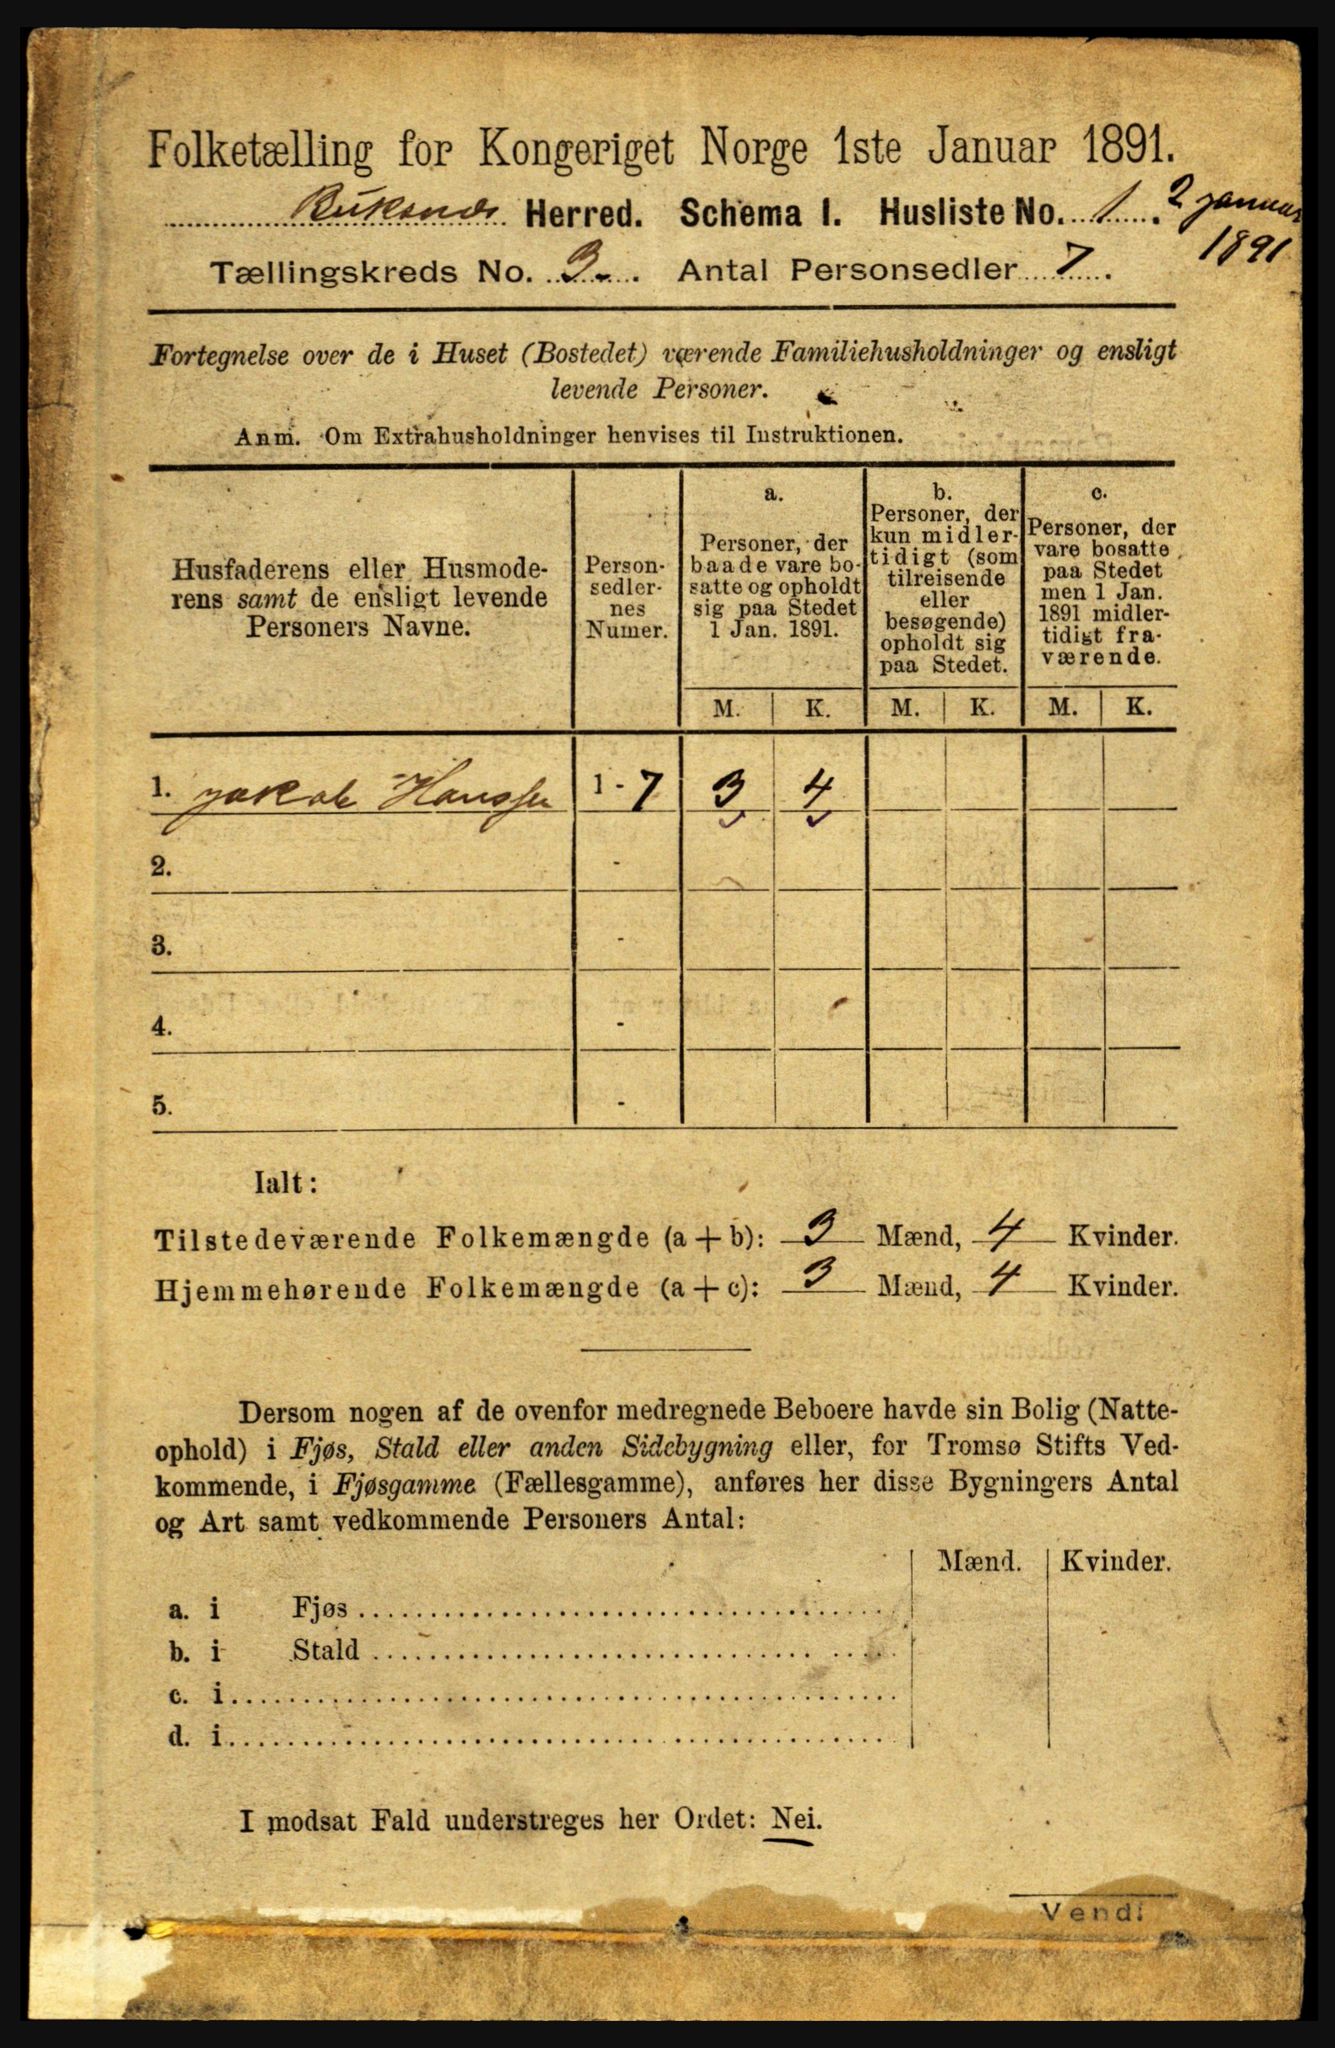 Folketælling for Kongeriget Norge 1ste Januar 1891.
Buksnæs Herred. Schema I. Husliste No. 1. 2 januar 1891
Tællingskreds No. 3. Antal Personsedler 7.
Fortegnelse over de i Huset (Bostedet) værende Familiehusholdninger og ensligt
levende Personer.
Anm. Om Extrahusholdninger henvises til Instruktionen.
Husfaderens eller Husmode-
rens samt de ensligt levende
Personers Navne.
Person-
sedler-
nes
Numer.
a.
Personer, der
baade vare bo-
satte og opholdt
sig paa Stedet
1 Jan. 1891.
b.
Personer, der
kun midler-
tidigt (som
tilreisende
eller
besøgende)
opholdt sig
paa Stedet.
c.
Personer, der
vare bosatte
paa Stedet
men 1 Jan.
1891 midler-
tidigt fra-
værende.
M. K. M. K. M. K.
1. Jakob Hanssen 1 - 7 3 4
2. -
3. -
4. -
5. -
Ialt:
Tilstedeværende Folkemængde (a + b): 3 Mænd, 4 Kvinder.
Hjemmehørende Folkemængde (a + c): 3 Mænd, 4 Kvinder.
Dersom nogen af de ovenfor medregnede Beboere havde sin Bolig (Natte-
ophold) i Fjøs, Stald eller anden Sidebygning eller, for Tromsø Stifts Ved-
kommende, i Fjøsgamme (Fællesgamme), anføres her disse Bygningers Antal
og Art samt vedkommende Personers Antal:
Mænd. Kvinder.
a. i Fjøs
b. i Stald
c. i
d. i
I modsat Fald understreges her Ordet: Nei.
Vend!